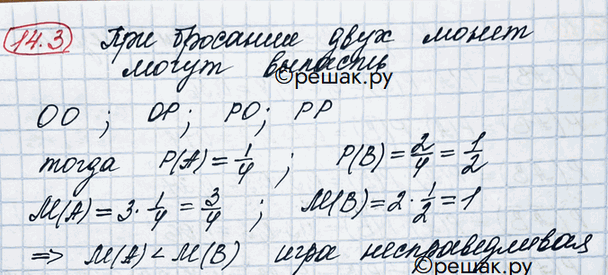 14.3 При бросании двух монет
могут выпасть
©решак.ру
ОО ; ОР; РО; РР
тогда P(A)=1/4 ; P(B)=2/4=1/2
M(A)=3·1/4=3/4 ; M(B)=2·1/2=1
=> M(A)<M(B) игра несправедливая
©решак.ру